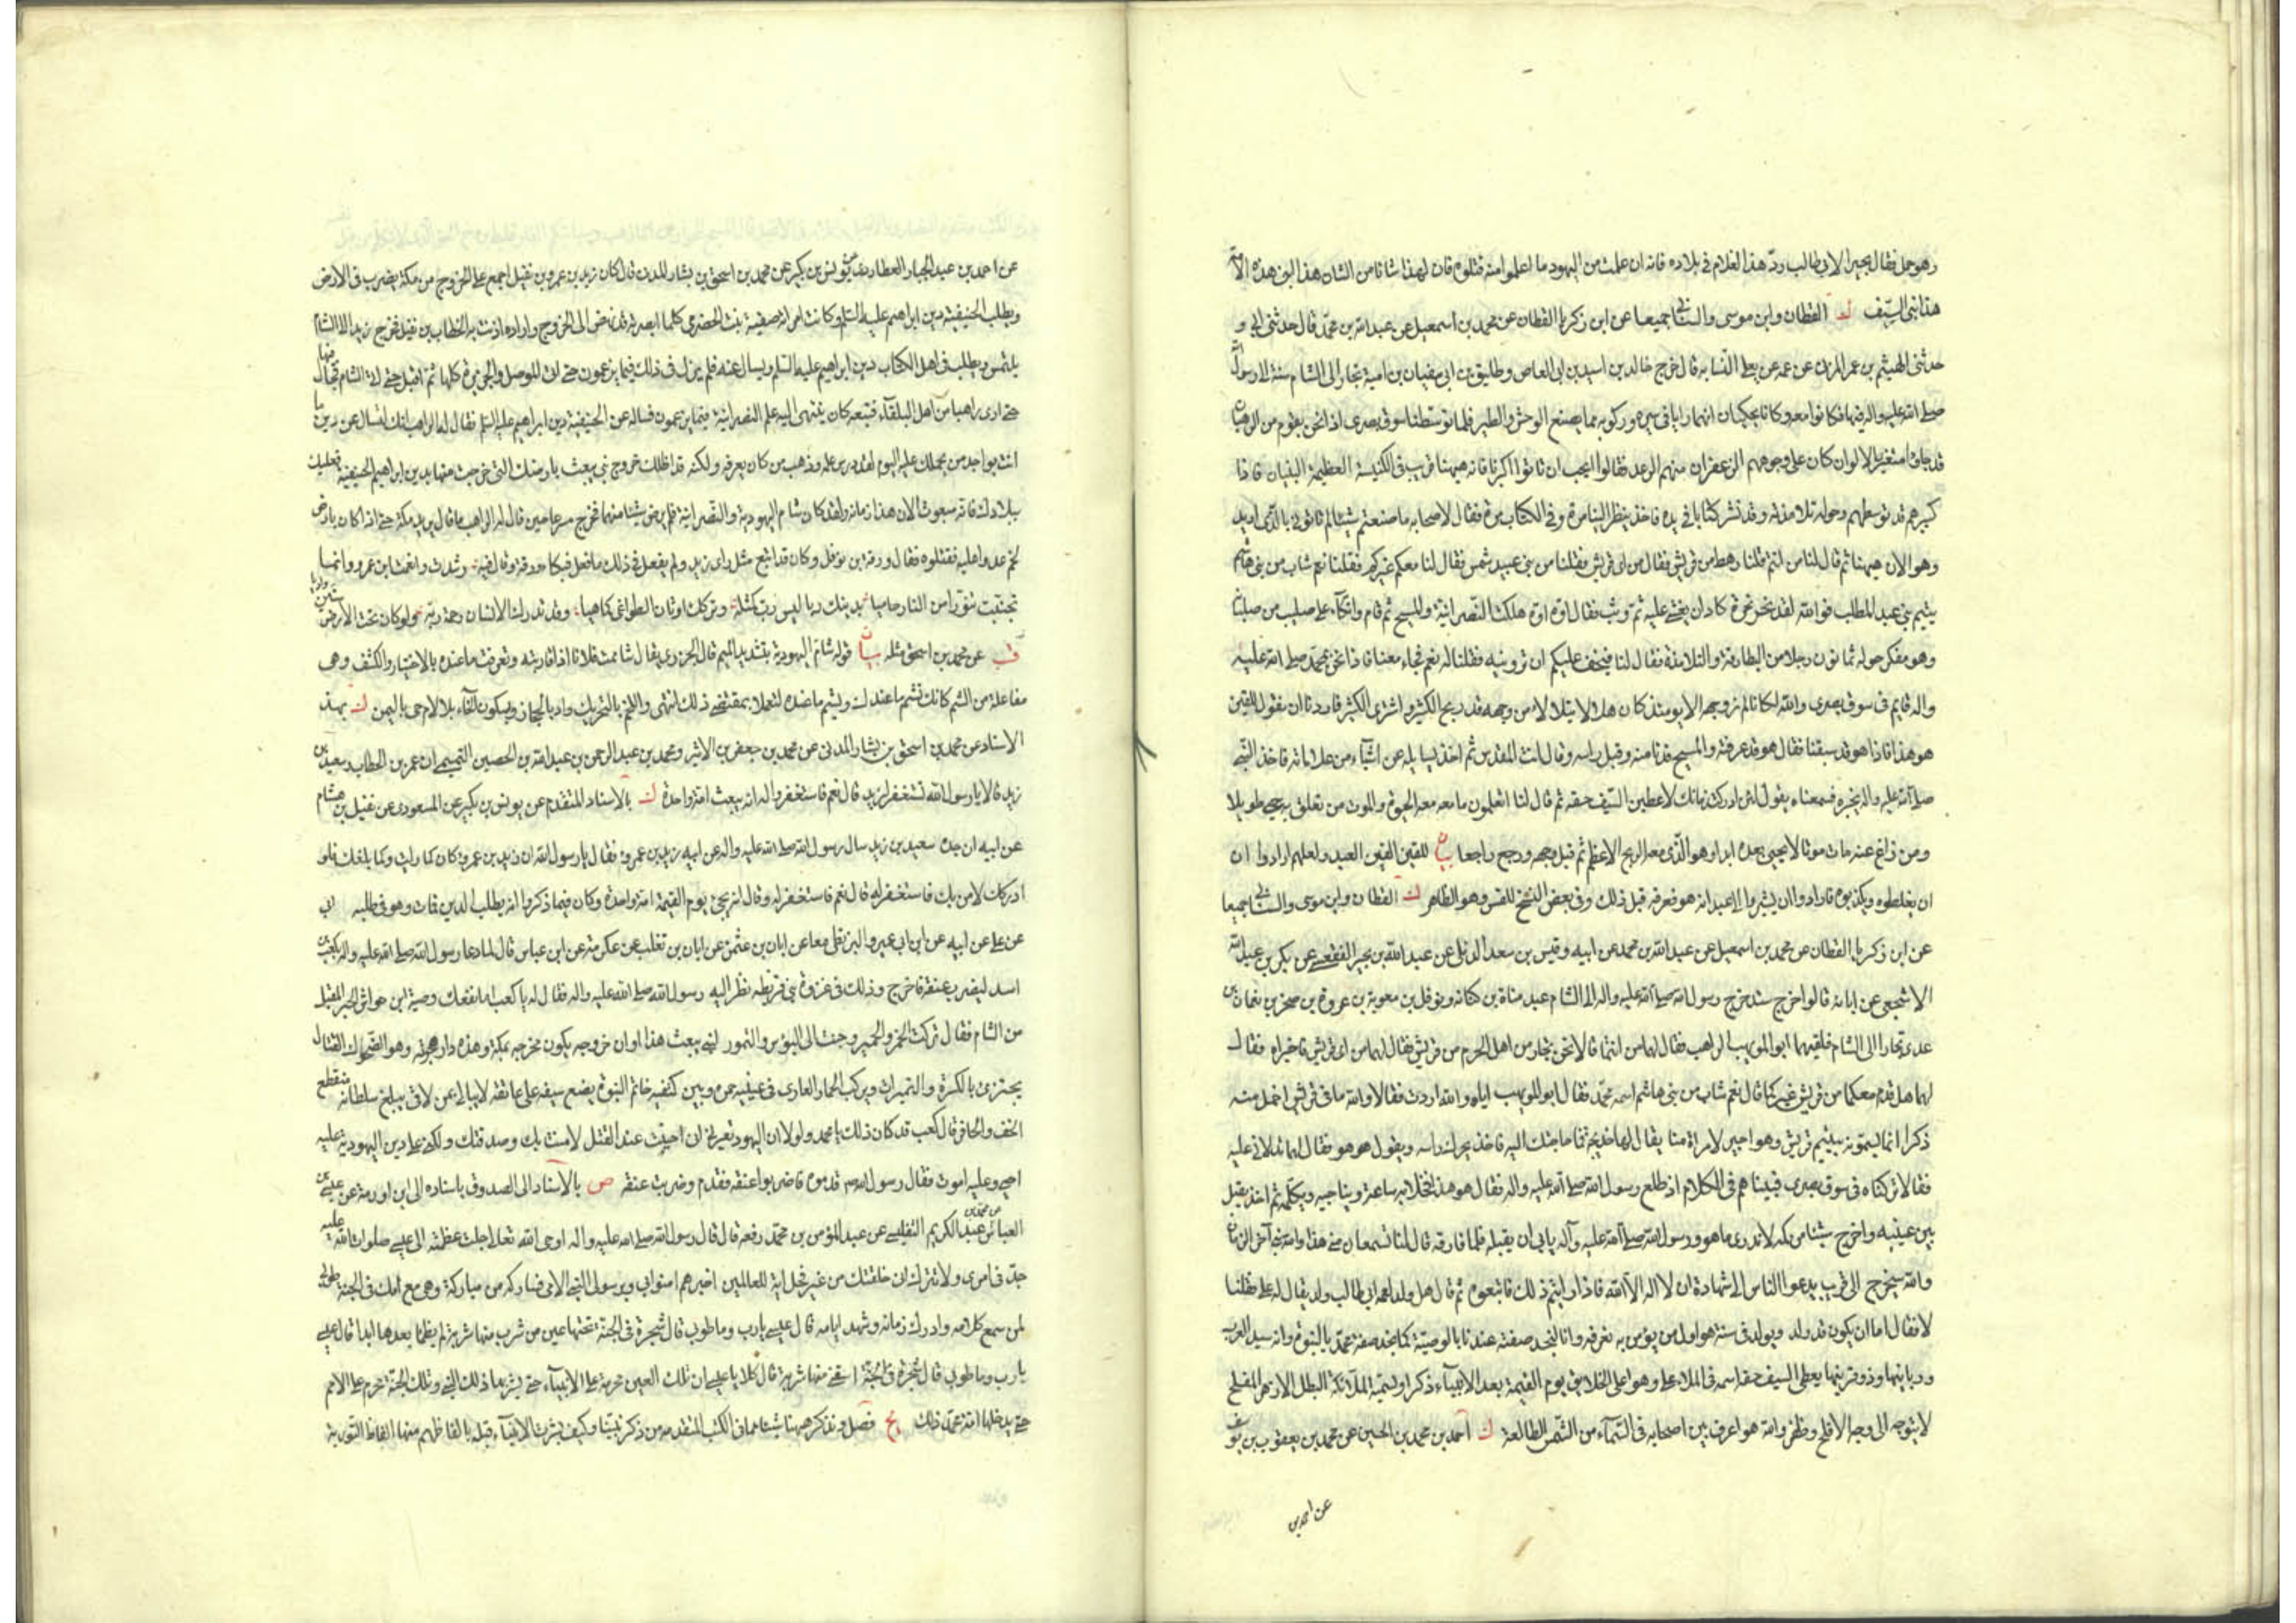 وهو حمل فقال بحيرا لابي طالب ردّ هذا الغلام الى بلاده فانه ان علمت من اليهود ما اعلموا منه قتلوه فان لهذا شانا من الشان هذا نبي هذه الامّة
هذا نبي السيف ك القطان وابن موسى والسناني جميعا عن ابن زكريا القطان عن محمد بن اسمعيل عن عبدالله بن محمد قال حدثني ابي و
حدثني الهيثم بن عمر المزني عن عمه عن يعلى النسابه قال خرج خالد بن اسيد بن ابي العاص وطليق بن ابي سفيان بن امية تجارا الى الشام سنة لا رسول الله
صلى الله عليه واله فيها فكانوا معه وكانا يحكيان انهما رايا في مسيره وركوبه مما يصنع الوحش والطير فلما توسطنا سوق بصرى اذا نحن بقوم من الرهبان
قد جاؤا متغيري الالوان كان على وجوههم الزعفران منهم الرعد فقالوا نحب ان تاتوا اكبرنا فانه ههنا قريب في الكنيسة العظيمة فاذا
كبيرهم قد توسطهم وحوله تلامذته وقد نشر كتابا في يده فاخذ ينظر الينا مرة وفي الكتاب مرة فقال لاصحابه ما صنعتم شيئا لم تاتوني بالذي اريد
وهو الان ههنا ثم قال لنا من انتم قلنا رهط من قريش فقال من اي قريش فقلنا من بني عبد شمس فقال لنا معكم غيركم فقلنا نعم شاب من بني هاشم
يتيم بني عبد المطلب فوالله لقد نخر نخرة كاد ان يغشى عليه ثم وثب فقال اوه اوه هلكت النصرانية والمسيح ثم قام واتكأ على صليب من صلبانه
وهو مفكر حوله ثمانون رجلا من البطارقة والتلامذة فقال لنا فيخف عليكم ان ترونيه فقلنا له نعم فجاء معنا فاذا نحن بمحمد صلى الله عليه
واله قايم في سوق بصرى والله لكانا لم نر وجهه الا يومئذ كان هلالا يتلالا من وجهه قد ربح الكثير واشترى الكثير فاردنا ان نقول للقين
هو هذا فاذا هو قد سبقنا فقال هو قد عرفته والمسيح فدنا منه وقبل راسه وقال انت المقدس ثم اخذ يسايله عن اشياء من علاماته فاخذ النبي
صلى الله عليه واله يخبره فسمعناه يقول لئن ادركت زمانك لاعطين السيف حقه ثم قال لنا اتعلمون ما معه معه الحيوة والموت من تعلق به حيي طويلا
ومن زاغ عنه مات موتا لا يحيى بعده ابدا وهو الذي معه الربح الاعظم ثم قبل وجهه ورجع راجعا بيان للقين القين العبد ولعلهم ارادوا ان
ان يغلطوه ويكذبوه فارادوا ان يشيروا الى عبد انه هو فعرفه قبل ذلك وفي بعض النسخ للقس وهو الظاهر ك القطان وابن موسى والسناني جميعا
عن ابن زكريا القطان عن محمد بن اسمعيل عن عبدالله بن محمد عن ابيه وقيس بن سعد الدئلي عن عبدالله بن بحير الفقعسي عن بكر بن عبدالله
الاشجعي عن ابائه قالوا خرج سنة خرج رسول الله صلى الله عليه واله الى الشام عبد مناة بن كنانه ونوفل بن معوية بن عروة بن صخر بن نعمان بن
عدي تجارا الى الشام فلقيهما ابو المويهب الراهب فقال لهما من انتما قالا نحن تجار من اهل الحرم من قريش فقال لهما من اي قريش فاخبراه فقال
لهما هل قدم معكما من قريش غيركما قالا نعم شاب من بني هاشم اسمه محمّد فقال ابو المويهب اياه والله اردت فقالا والله ما في قريش اخمل منه
ذكرا انما يسمونه بيتيم قريش وهو اجير لامراة منا يقال لها خديجة فما حاجتك اليه فاخذ يحرك راسه ويقول هو هو فقال لهما تدلاني عليه
فقالا تركناه في سوق بصرى فبينما هم في الكلام اذ طلع رسول الله صلى الله عليه واله فقال هو هذا فخلا به ساعة ويناجيه ويكلمه ثم اخذ يقبل
بين عينيه واخرج شيئا من كمه لا ندري ما هو ورسول الله صلى الله عليه وآله يابى ان يقبله فلما فارقه قال لنا تسمعان مني هذا والله نبي آخر الزمان
والله سيخرج الى قريب يدعوا الناس الى شهادة ان لا اله الا الله فاذا رايتم ذلك فاتبعوه ثم قال هل ولد لعمه ابي طالب ولد يقال له علي فقلنا
لا فقال اما ان يكون قد ولد او يولد في سنته هو اول من يؤمن به نعرفه وانا لنجد صفته عندنا بالوصيّة كما نجد صفة محمّد بالنبوة وانه سيد العرب
وربانيها وذو قرنيها يعطي السيف حقه اسمه في الملا علي وهو اعلى الخلائق يوم القيمة بعد الانبياء ذكرا وتسميّه الملائكة البطل الازهر المفلح
لا يتوجه الى وجه الا افلح وظفر والله هو اعرف بين اصحابه في السّماء من الشّمس الطالعة ك احمد بن محمد بن الحسين عن محمد بن يعقوب بن يوسف
عن احمد بن
عن احمد بن عبد الجبار العطاردي عن يونس بن بكير عن محمد بن اسحق بن بشار المدني قال كان زيد بن عمرو بن نفيل اجمع على الخروج من مكة يضرب في الارض
ويطلب الحنيفية دين ابراهيم عليه السلم وكانت امراته صفية بنت الحضرمي كلما ابصرته قد نهض الى الخروج واراده اذنت به الخطاب بن نفيل فخرج زيد الى الشام
يلتمس ويطلب في اهل الكتاب دين ابراهيم عليه السلم ويسال عنه فلم يزل في ذلك فيما يزعمون حتى اتى الموصل والجزيرة كلها ثم اقبل حتى اتى الشام فجال فيها
حتى اتى راهبا من اهل البلقاء فتبعه كان ينتهي اليه علم النصرانية فيما يزعمون فساله عن الحنيفية دين ابراهيم عليه السلم فقال له الراهب انك لتسال عن دين ما
انت بواجد من يحملك عليه اليوم لقد درس علمه وذهب من كان يعرفه ولكنه قد اظلك خروج نبي يبعث بارضك التي خرجت منها بدين ابراهيم الحنيفية فعليك
ببلادك فانه مبعوث الان هذا زمانه ولقد كان شام اليهودية والنصرانية فلم يرض شيئا منهما فخرج مسرعا حين قال له الراهب ما قال يريد مكة حتى اذا كان بارض
لخم عدوا عليه فقتلوه فقال ورقة بن نوفل وكان قد اتبع مثل راي زيد ولم يفعل في ذلك ما فعل فبكاه ورقة وقال فيه رشدت وانعمت ابن عمرو وانما
تجنبت تنورا من النار حاميا بدينك ربا ليس رب كمثله وتركك اوثان الطواغي كما هيا وقد تدرك الانسان رحمة ربّه ولو كان تحت الارض ستين واديا
قب عن محمد بن اسحق مثله بيان قوله شام اليهودية بتشديد الميم قال الجزري يقال شاممت فلانا اذا قاربته وتعرفت ما عنده بالاختبار والكشف وهي
مفاعلة من الشم كانك تشم ما عنده ويشم ما عندك لتعملا بمقتضى ذلك انتهى واللخم بالتحريك واد بالحجاز وبسكون الخاء بلا لام حي باليمن ك بهذا
الاسناد عن محمد بن اسحق بن بشار المدني عن محمد بن جعفر بن الاثير ومحمد بن عبد الرحمن بن عبدالله بن الحصين التميمي ان عمر بن الخطاب وسعيد بن
زيد قالا يا رسول الله تستغفر لزيد قال نعم فاستغفروا له انه يبعث امة واحدة ك بالاسناد المتقدم عن يونس بن بكير عن المسعودي عن نفيل بن هشام
عن ابيه ان جده سعيد بن زيد سال رسول الله صلى الله عليه واله عن ابيه زيد بن عمرو فقال يا رسول الله ان زيد بن عمرو كان كما رايت وكما بلغك فلو
ادركك لامن بك فاستغفر له قال نعم فاستغفر له وقال انه يجيء يوم القيمة امة واحدة وكان فيما ذكروا انه يطلب الدين فمات وهو في طلبه ابي
عن علي عن ابيه عن ابن ابي عمير والبزنطي معا عن ابان بن عثمن عن ابان بن تغلب عن عكرمة عن ابن عباس قال لما دعا رسول الله صلى الله عليه واله بكعب بن
اسد ليضرب عنقه فاخرج وذلك في غزوة بني قريظه نظر اليه رسول الله صلى الله عليه واله فقال له يا كعب اما نفعك وصية ابن حواش الحبر المقبل
من الشام فقال تركت الخمر والخمير وجئت الى البؤس والتمور لنبي يبعث هذا اوان خروجه يكون مخرجه بمكة وهذه دار هجرته وهو الضحوك القتال
يجتزي بالكسرة والتميرات ويركب الحمار العاري في عينيه حمرة وبين كتفيه خاتم النبوة يضع سيفه على عاتقه لا يبالي بمن لاقى يبلغ سلطانه منقطع
الخف والحافر قال كعب قد كان ذلك يا محمد ولولا ان اليهود تعيرني اني جبنت عند القتل لامنت بك وصدقتك ولكني على دين اليهودية عليه
احيى وعليه اموت فقال رسول الله ص قدموه فاضربوا عنقه فقدم وضربت عنقه ص بالاسناد الى الصدوق باسناده الى ابن اورمة عن عيسى بن
العباس عن محمد بن عبد الكريم التفليسي عن عبد المؤمن بن محمد رفعه قال قال رسول الله صلى الله عليه واله اوحى الله تعالى جلت عظمته الى عيسى صلوات الله عليه
جدّ في امري ولا تترك اني خلقتك من غير فحل اية للعالمين اخبرهم امنوا بي وبرسولي النبي الامي نسله من مباركة وهي مع امك في الجنة طوبى
لمن سمع كلامه وادرك زمانه وشهد ايامه قال عيسى يا رب وما طوبى قال شجرة في الجنة تحتها عين من شرب منها شربة لم يظما بعدها ابدا قال عيسى
يا رب وما طوبى قال شجرة في الجنة اسقني منها شربة قال كلا يا عيسى ان تلك العين محرمة على الانبياء حتى يشربها ذلك النبي وتلك الجنة محرمة على الامم
حتى يدخلها امة محمد ذلك يج فصل ونذكر ههنا شيئا مما في الكتب المتقدمه من ذكر نبينا وكيف بشرت الانبياء قبله بالفاظهم منها الفاظ التورية